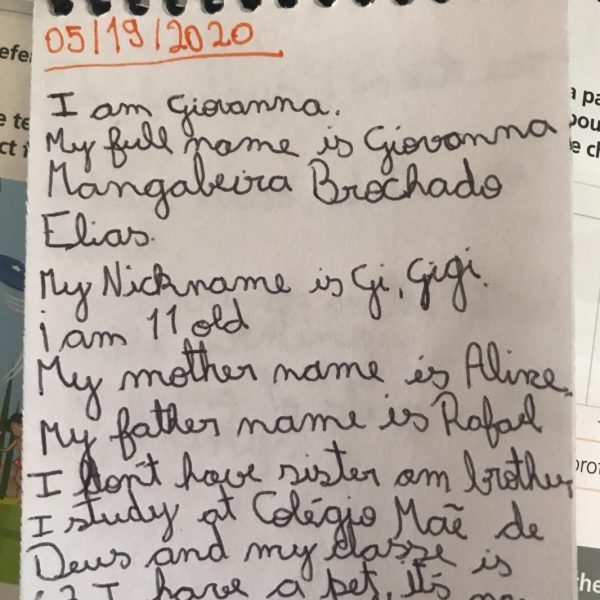 05/19/2020
I am Giovanna.
My full name is Giovanna
Mangabeira Brochado
Elias.
My Nickname is Gi, Gigi.
i am 11 old
My mother name is Aline.
My father name is Rafael
I don't have sister am brother
I study at Colégio Mãe de
Deus and my classe is
I have a pet, It's